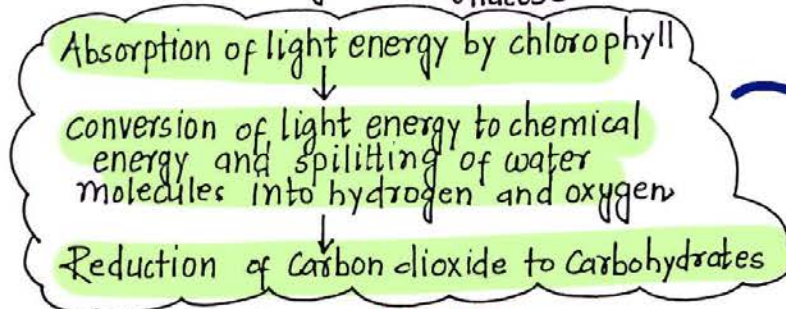 Absorption of light energy by chlorophyll
↓
conversion of light energy to chemical
energy and spilitting of water
molecules into hydrogen and oxygen
↓
Reduction of Carbon dioxide to Carbohydrates